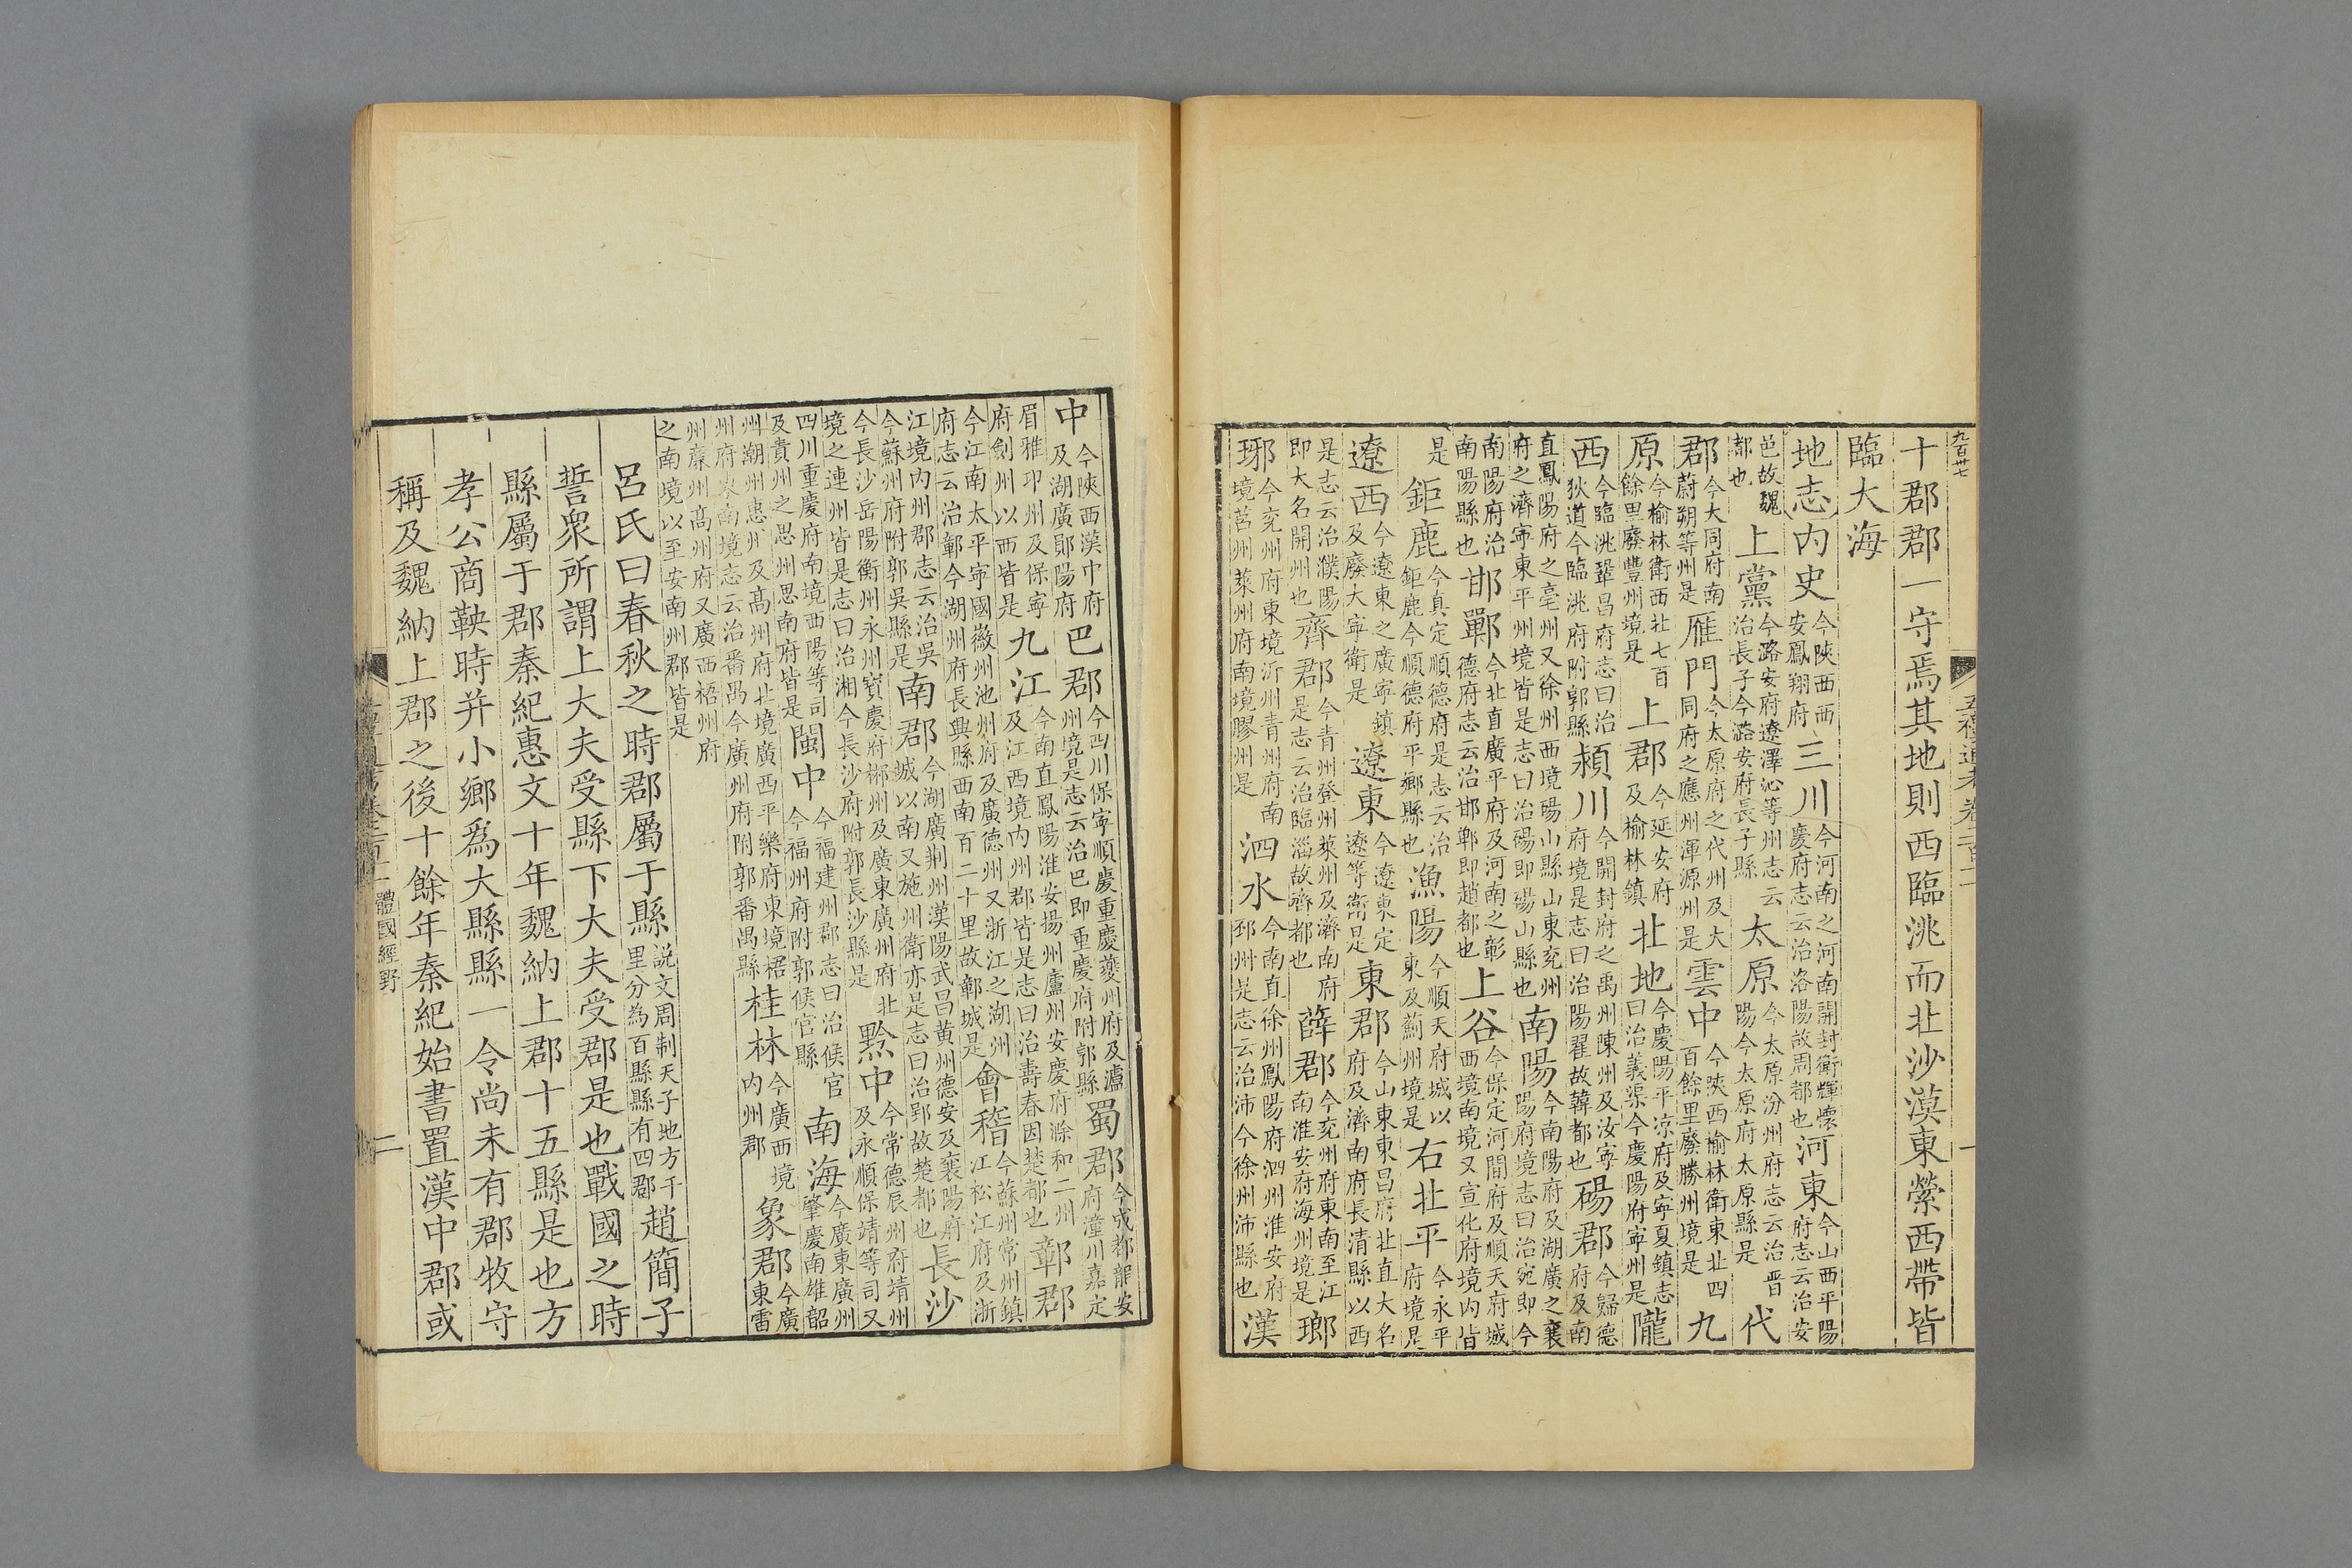 九百卅七
十郡郡一守焉其地則西臨洮而北沙漠東縈西帶皆
臨大海
地志内史今陝西西安鳳翔府三川今河南之河南開封衛輝懷慶府志云治洛陽故周都也河東今山西平陽府志云治安
邑故魏都也上黨今潞安府遼澤沁等州志云治長子今潞安府長子縣太原今太原汾州府志云治晋陽今太原府太原縣是代
郡今大同府南蔚朔等州是雁門今太原府之代州及大同府之應州渾源州是雲中今陝西榆林衛東北四百餘里廢勝州境是九
原今榆林衛西北七百餘里廢豐州境是上郡今延安府及榆林鎮北地今慶陽平凉府及寧夏鎮志曰治義渠今慶陽府寧州是隴
西今臨洮鞏昌府志曰治狄道今臨洮府附郭縣潁川今開封府之禹州陳州及汝寧府境是志曰治陽翟故韓都也碭郡今歸德府及南
直鳳陽府之亳州又徐州西境碭山縣山東兗州府之濟寧東平州境皆是志曰治碭即碭山縣也南陽今南陽府及湖廣之襄陽府境志曰治宛即今
南陽府治南陽縣也邯鄲今北直廣平府及河南之彰德府志云治邯鄲即趙都也上谷今保定河間府及順天府城西境南境又宣化府境内皆
是鉅鹿今真定順德府是志云治鉅鹿今順德府平鄉縣也漁陽今順天府城以東及薊州境是右北平今永平府境是
遼西今遼東之廣寧鎮及廢大寧衛是遼東今遼東定遼等衛是東郡今山東東昌府北直大名府及濟南府長清縣以西
是志云治濮陽即大名開州也齊郡今青州登州萊州及濟南府是志云治臨淄故齊都也薛郡今兗州府東南至江南淮安府海州境是瑯
琊今兗州府東境沂州青州府南境莒州萊州府南境膠州是泗水今南直徐州鳳陽府泗州淮安府邳州是志云治沛今徐州沛縣也漢
中今陝西漢中府及湖廣鄖陽府巴郡今四川保寧順慶重慶夔州府及瀘州境是志云治巴即重慶府附郭縣蜀郡今成都龍安府潼川嘉定
眉雅邛州及保寧府劍州以西皆是九江今南直鳳陽淮安揚州廬州安慶府滁和二州及江西境内州郡皆是志曰治壽春因楚都也鄣郡
今江南太平寧國徽州池州府及廣德州又浙江之湖州府志云治鄣今湖州府長興縣西南百二十里故鄣城是會稽今蘇州常州鎮江松江府及浙
江境内州郡志云治吳今蘇州府附郭吳縣是南郡今湖廣荆州漢陽武昌黄州德安及襄陽府城以南又施州衛亦是志曰治郢故楚都也長沙
今長沙岳陽衡州永州寶慶府郴州及廣東廣州府北境之連州皆是志曰治湘今長沙府附郭長沙縣是黔中今常德辰州府靖州及永順保靖等司又
四川重慶府南境西陽等司及貴州之思州思南府皆是閩中今福建州郡志曰治候官今福州府附郭候官縣南海今廣東廣州肇慶南雄韶
州潮州惠州及高州府北境廣西平樂府東境梧州府東南境志云治番禺今廣州府附郭番禺縣桂林今廣西境内州郡象郡今廣東雷
州廉州高州府又廣西梧州府之南境以至安南州郡皆是
呂氏曰春秋之時郡屬于縣説文周制天子地方千里分為百縣縣有四郡趙簡子
誓衆所謂上大夫受縣下大夫受郡是也戰國之時
縣屬于郡秦紀惠文十年魏納上郡十五縣是也方
孝公商鞅時并小鄉爲大縣縣一令尚未有郡牧守
稱及魏納上郡之後十餘年秦紀始書置漢中郡或
體國經野
二